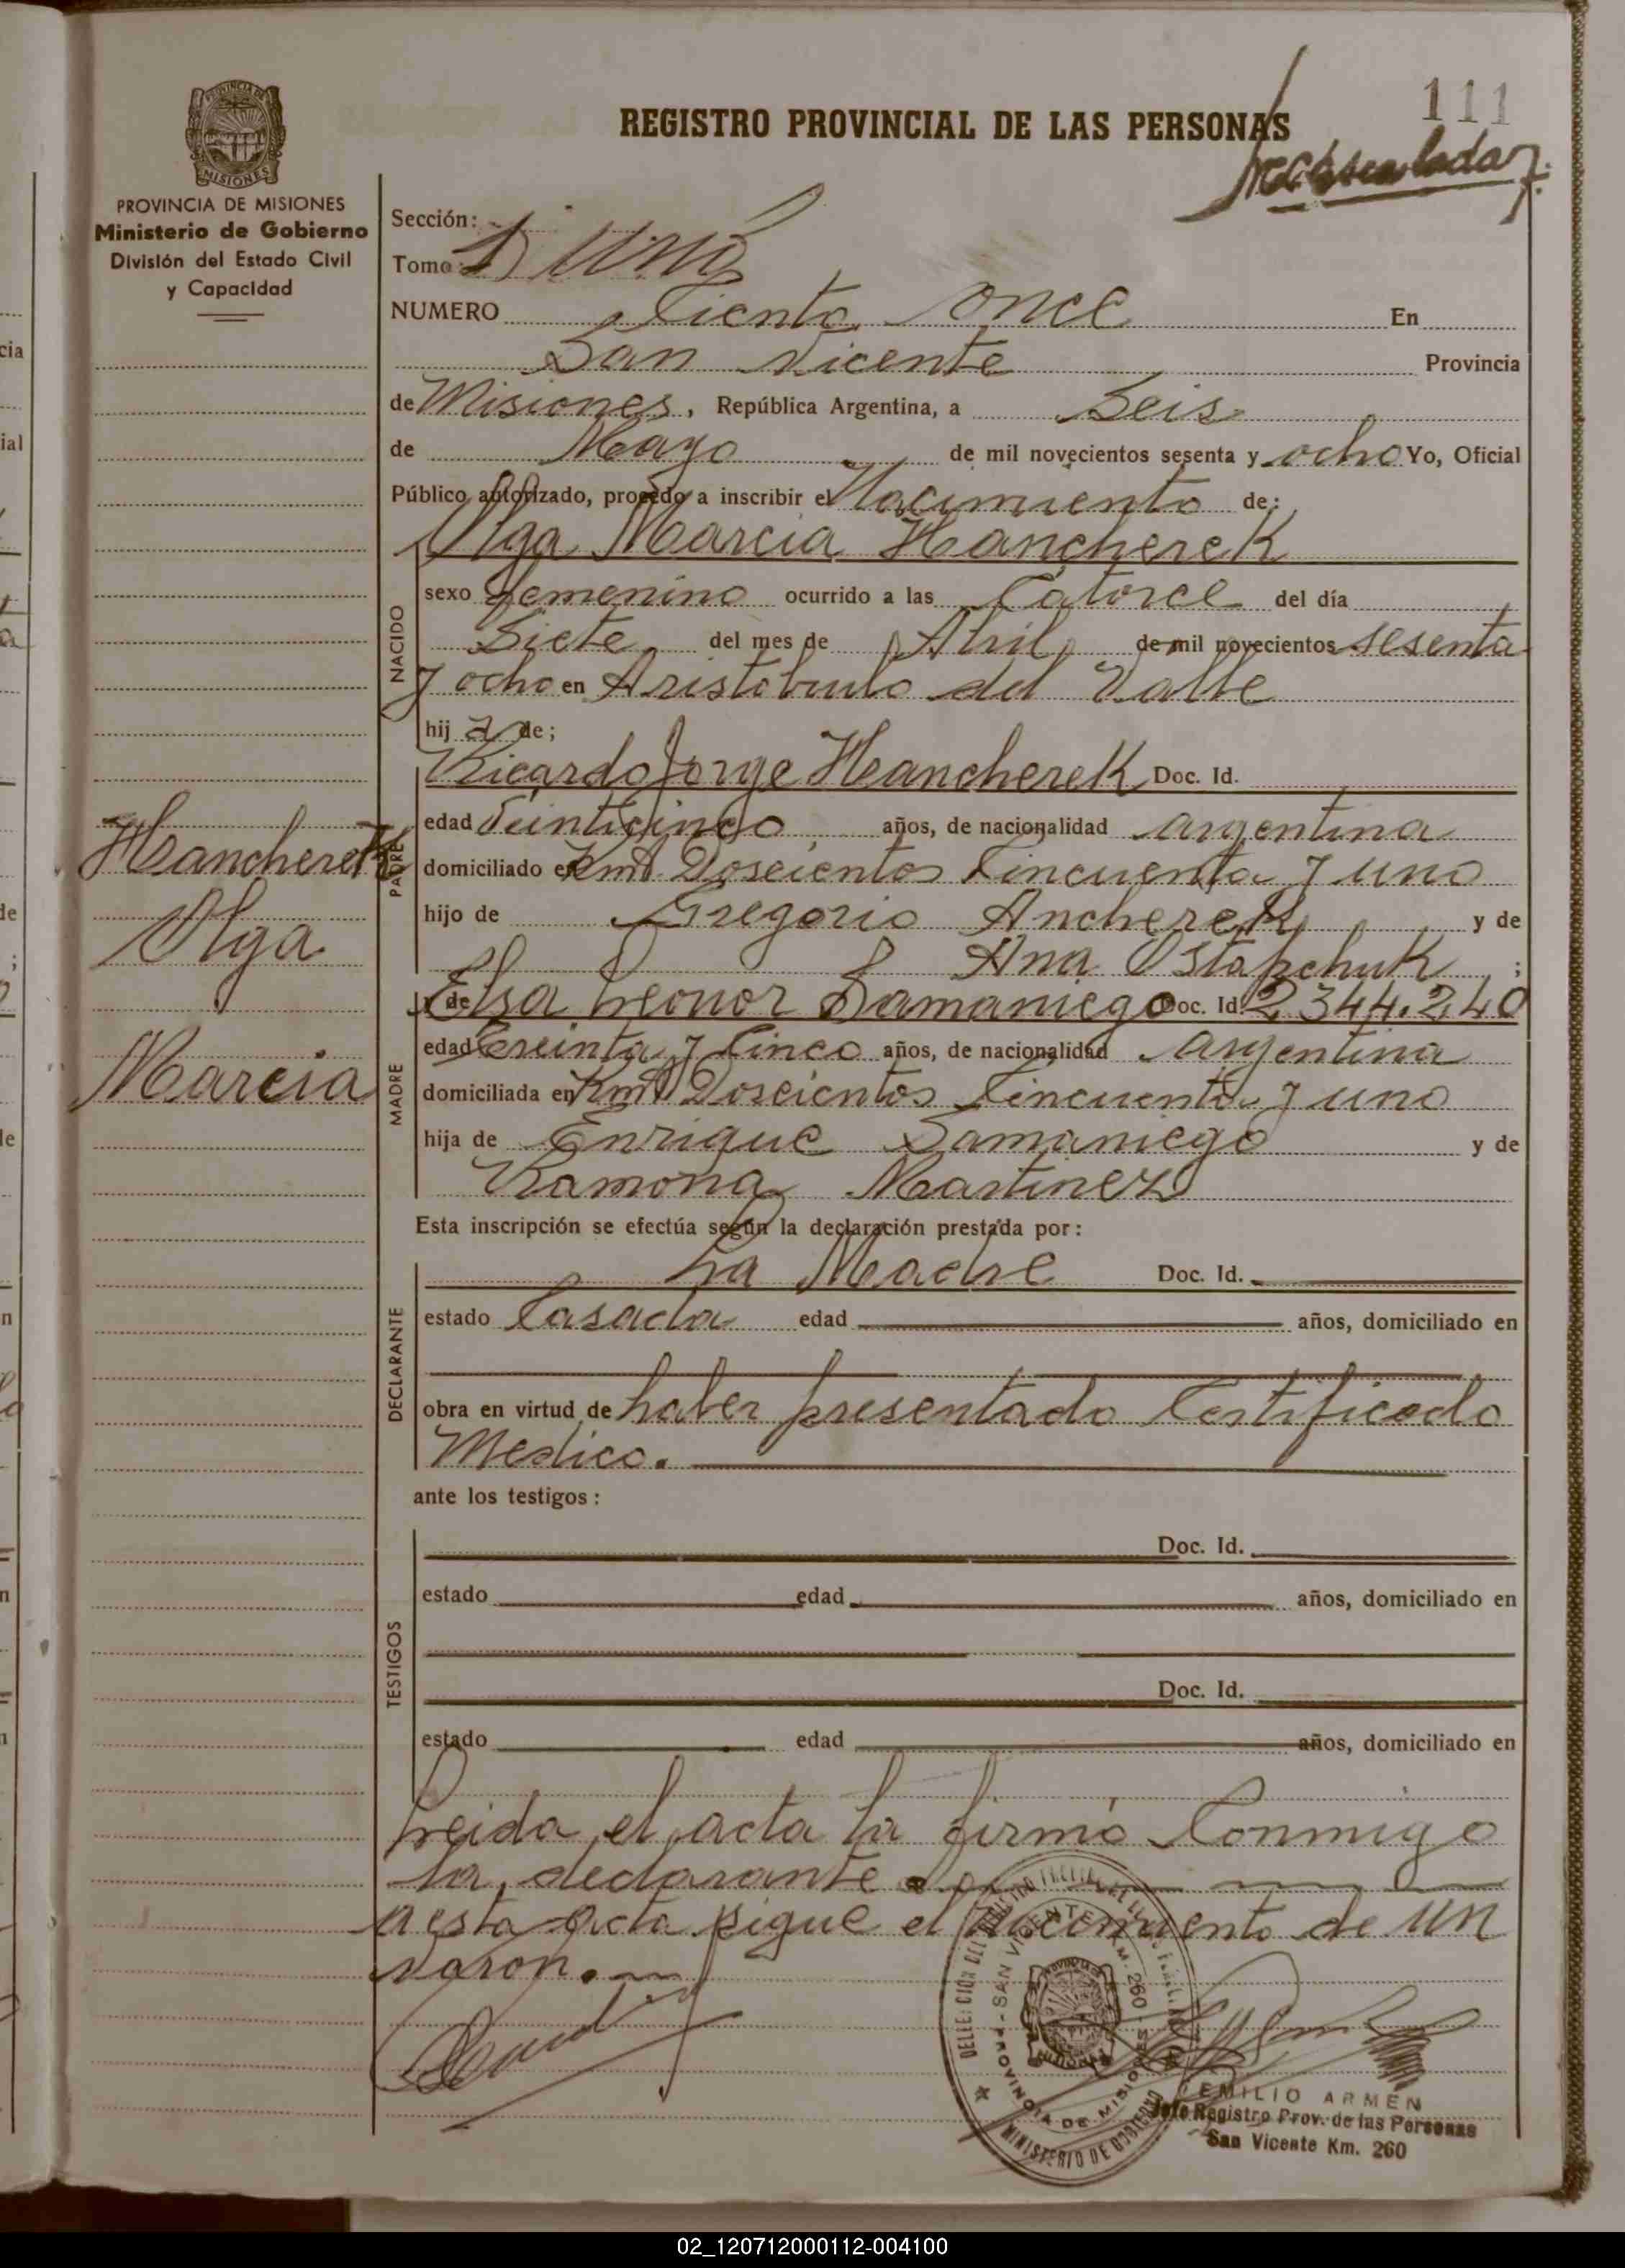 111
REGISTRO PROVINCIAL DE LAS PERSONAS
PROVINCIA DE MISIONES
Ministerio de Gobierno
División del Estado Civil
y Capacidad
Sección:
Tomo: 1) Uno
NUMERO Ciento once En
San Vicente Provincia
de Misiones, República Argentina, a Seis
de Mayo de mil novecientos sesenta y ocho Yo, Oficial
Público autorizado, procedo a inscribir el Nacimiento de:
Olga Marcia Hancherek
NACIDO
sexo femenino ocurrido a las Catorce del día
Siete del mes de Abril de mil novecientos sesenta
y ocho en Aristobulo del Valle
hij a de;
Ricardo Jorge Hancherek Doc. Id.
PADRE
edad Veinticinco años, de nacionalidad argentina
domiciliado en Kmt Doscientos Cincuenta y uno
hijo de Gregorio Ancherek y de
Ana Ostapchuk ;
y de Elsa Leonor Samaniego Doc. Id. 2.344.240
MADRE
edad Treinta y Cinco años, de nacionalidad argentina
domiciliada en Kmt Doscientos Cincuenta y uno
hija de Enrique Samaniego y de
Ramona Martinez
Hancherek
Olga
Marcia
Esta inscripción se efectúa según la declaración prestada por:
DECLARANTE
La Madre Doc. Id.
estado Casada edad años, domiciliado en
obra en virtud de haber presentado Certificado
Medico.
ante los testigos:
TESTIGOS
Doc. Id.
estado edad años, domiciliado en
Doc. Id.
estado edad años, domiciliado en
Leida el acta la firmó Conmigo
la declarante
a esta acta sigue el nacimiento de un
varon.
SAN VICENTE KM. 260
PROVINCIA DE MISIONES
MINISTERIO DE GOBIERNO
EMILIO ARMEN
Jefe Registro Prov. de las Personas
San Vicente Km. 260
02_120712000112-004100